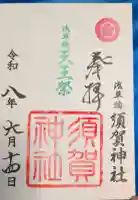 奉拝
浅草橋
須賀神社
浅草橋
天王祭
須賀
神社
令和八年六月十四日